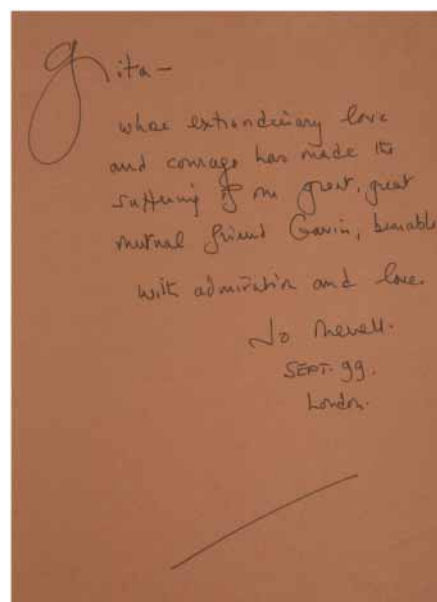 Gita –
whose extraordinary love
and courage has made the
suffering of our great, great
mutual friend Gavin, bearable
with admiration and love.
Jo
SEPT. 99.
London.